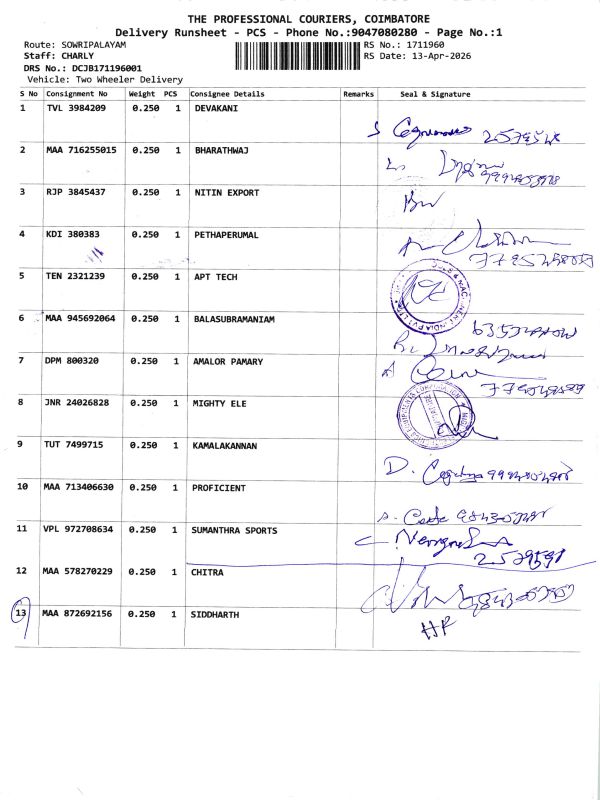 THE PROFESSIONAL COURIERS, COIMBATORE
Delivery Runsheet - PCS - Phone No.:9047080280 - Page No.:1
Route: SOWRIPALAYAM RS No.: 1711960
Staff: CHARLY RS Date: 13-Apr-2026
DRS No.: DCJB171196001
Vehicle: Two Wheeler Delivery
S No Consignment No Weight PCS Consignee Details Remarks Seal & Signature
1 TVL 3984209 0.250 1 DEVAKANI
2 MAA 716255015 0.250 1 BHARATHWAJ
3 RJP 3845437 0.250 1 NITIN EXPORT
4 KDI 380383 0.250 1 PETHAPERUMAL
5 TEN 2321239 0.250 1 APT TECH
6 MAA 945692064 0.250 1 BALASUBRAMANIAM
7 DPM 800320 0.250 1 AMALOR PAMARY
8 JNR 24026828 0.250 1 MIGHTY ELE
9 TUT 7499715 0.250 1 KAMALAKANNAN
10 MAA 713406630 0.250 1 PROFICIENT
11 VPL 972708634 0.250 1 SUMANTHRA SPORTS
12 MAA 578270229 0.250 1 CHITRA
13 MAA 872692156 0.250 1 SIDDHARTH